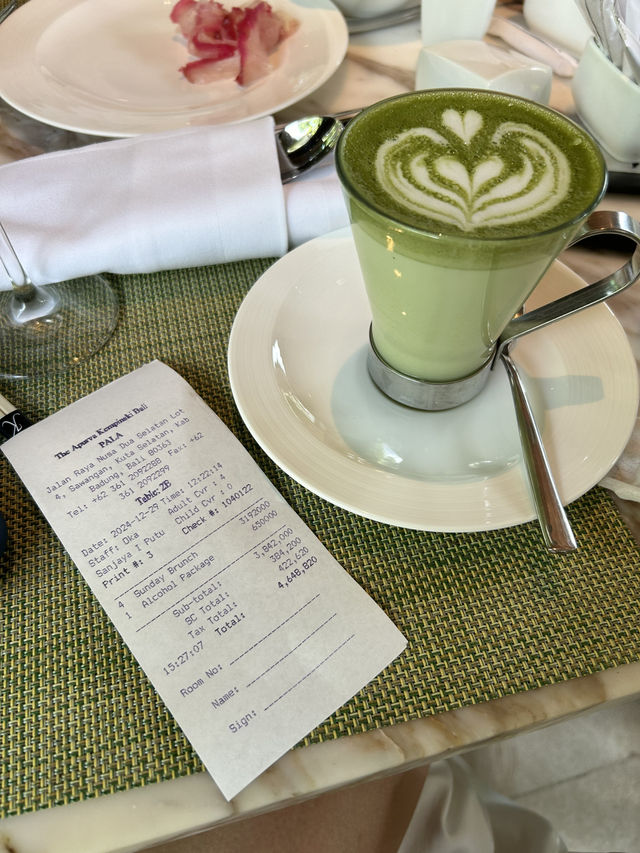 The Apurva Kempinski Bali
PALA
Jalan Raya Nusa Dua Selatan Lot
4, Sawangan, Kuta Selatan, Kab
Badung, Bali 80363
Tel: +62 361 2092288 Fax: +62
361 2092299
Table: 2B
Date: 2024-12-29 Time: 12:22:14
Staff: Oka Adult Cvr : 4
Sanjaya I Putu Child Cvr : 0
Print #: 3 Check #: 1040122
4 Sunday Brunch 3192000
1 Alcohol Package 650000
Sub-total: 3,842,000
SC Total: 384,200
Tax Total: 422,620
15:27:07 Total: 4,648,820
Room No:
Name:
Sign: